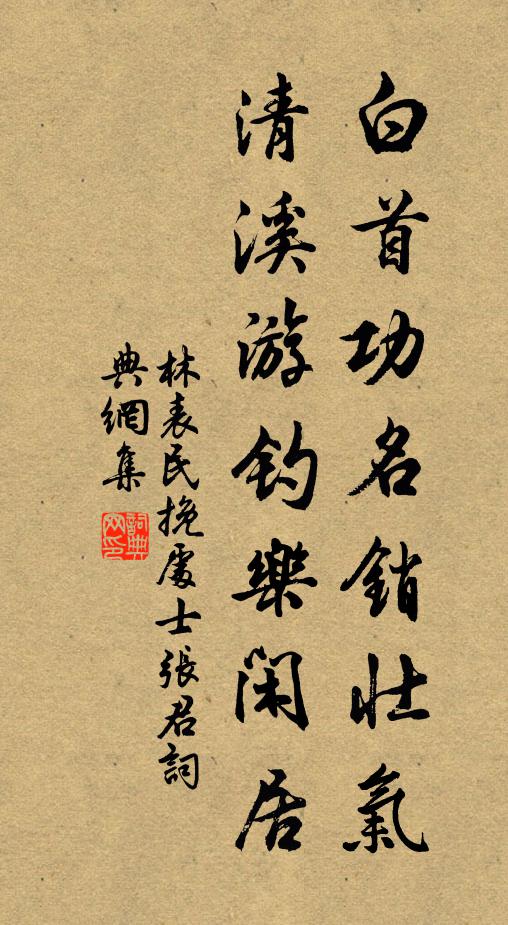 白首功名銷壯氣
清溪游釣樂閑居
林表民挽處士張君詞
典網集
詞典網印